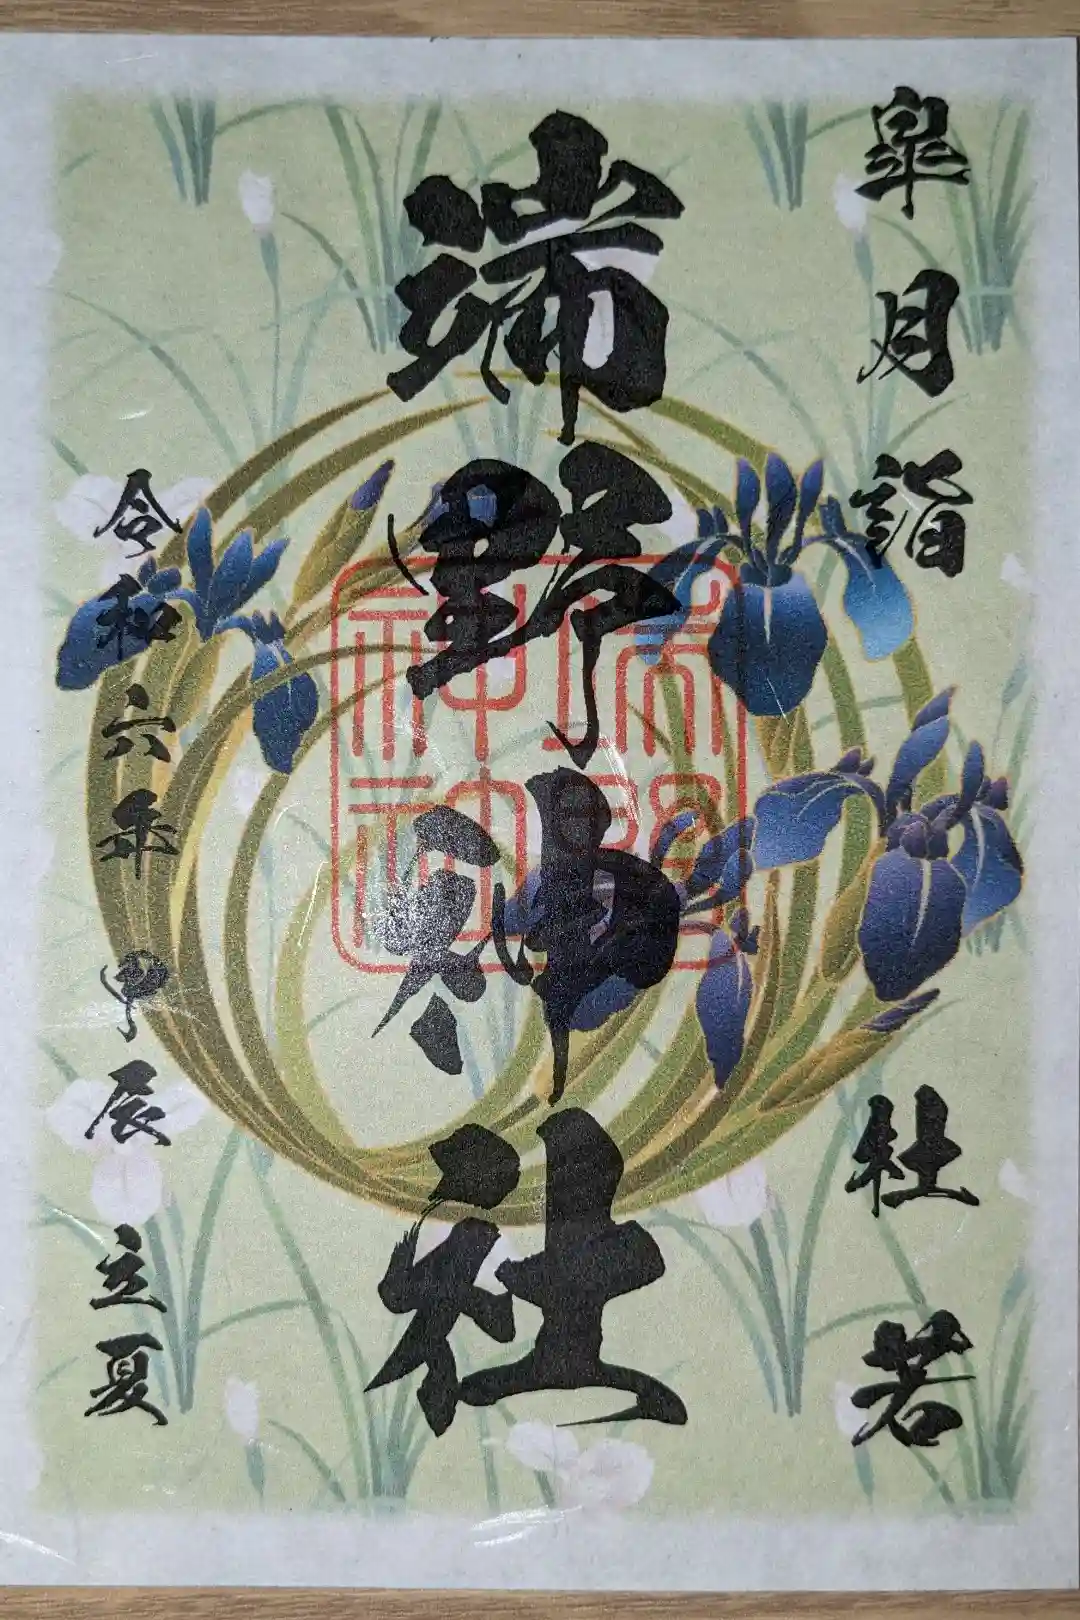 皐月詣 杜若
端野神社
端野神社
令和六年 甲辰 立夏